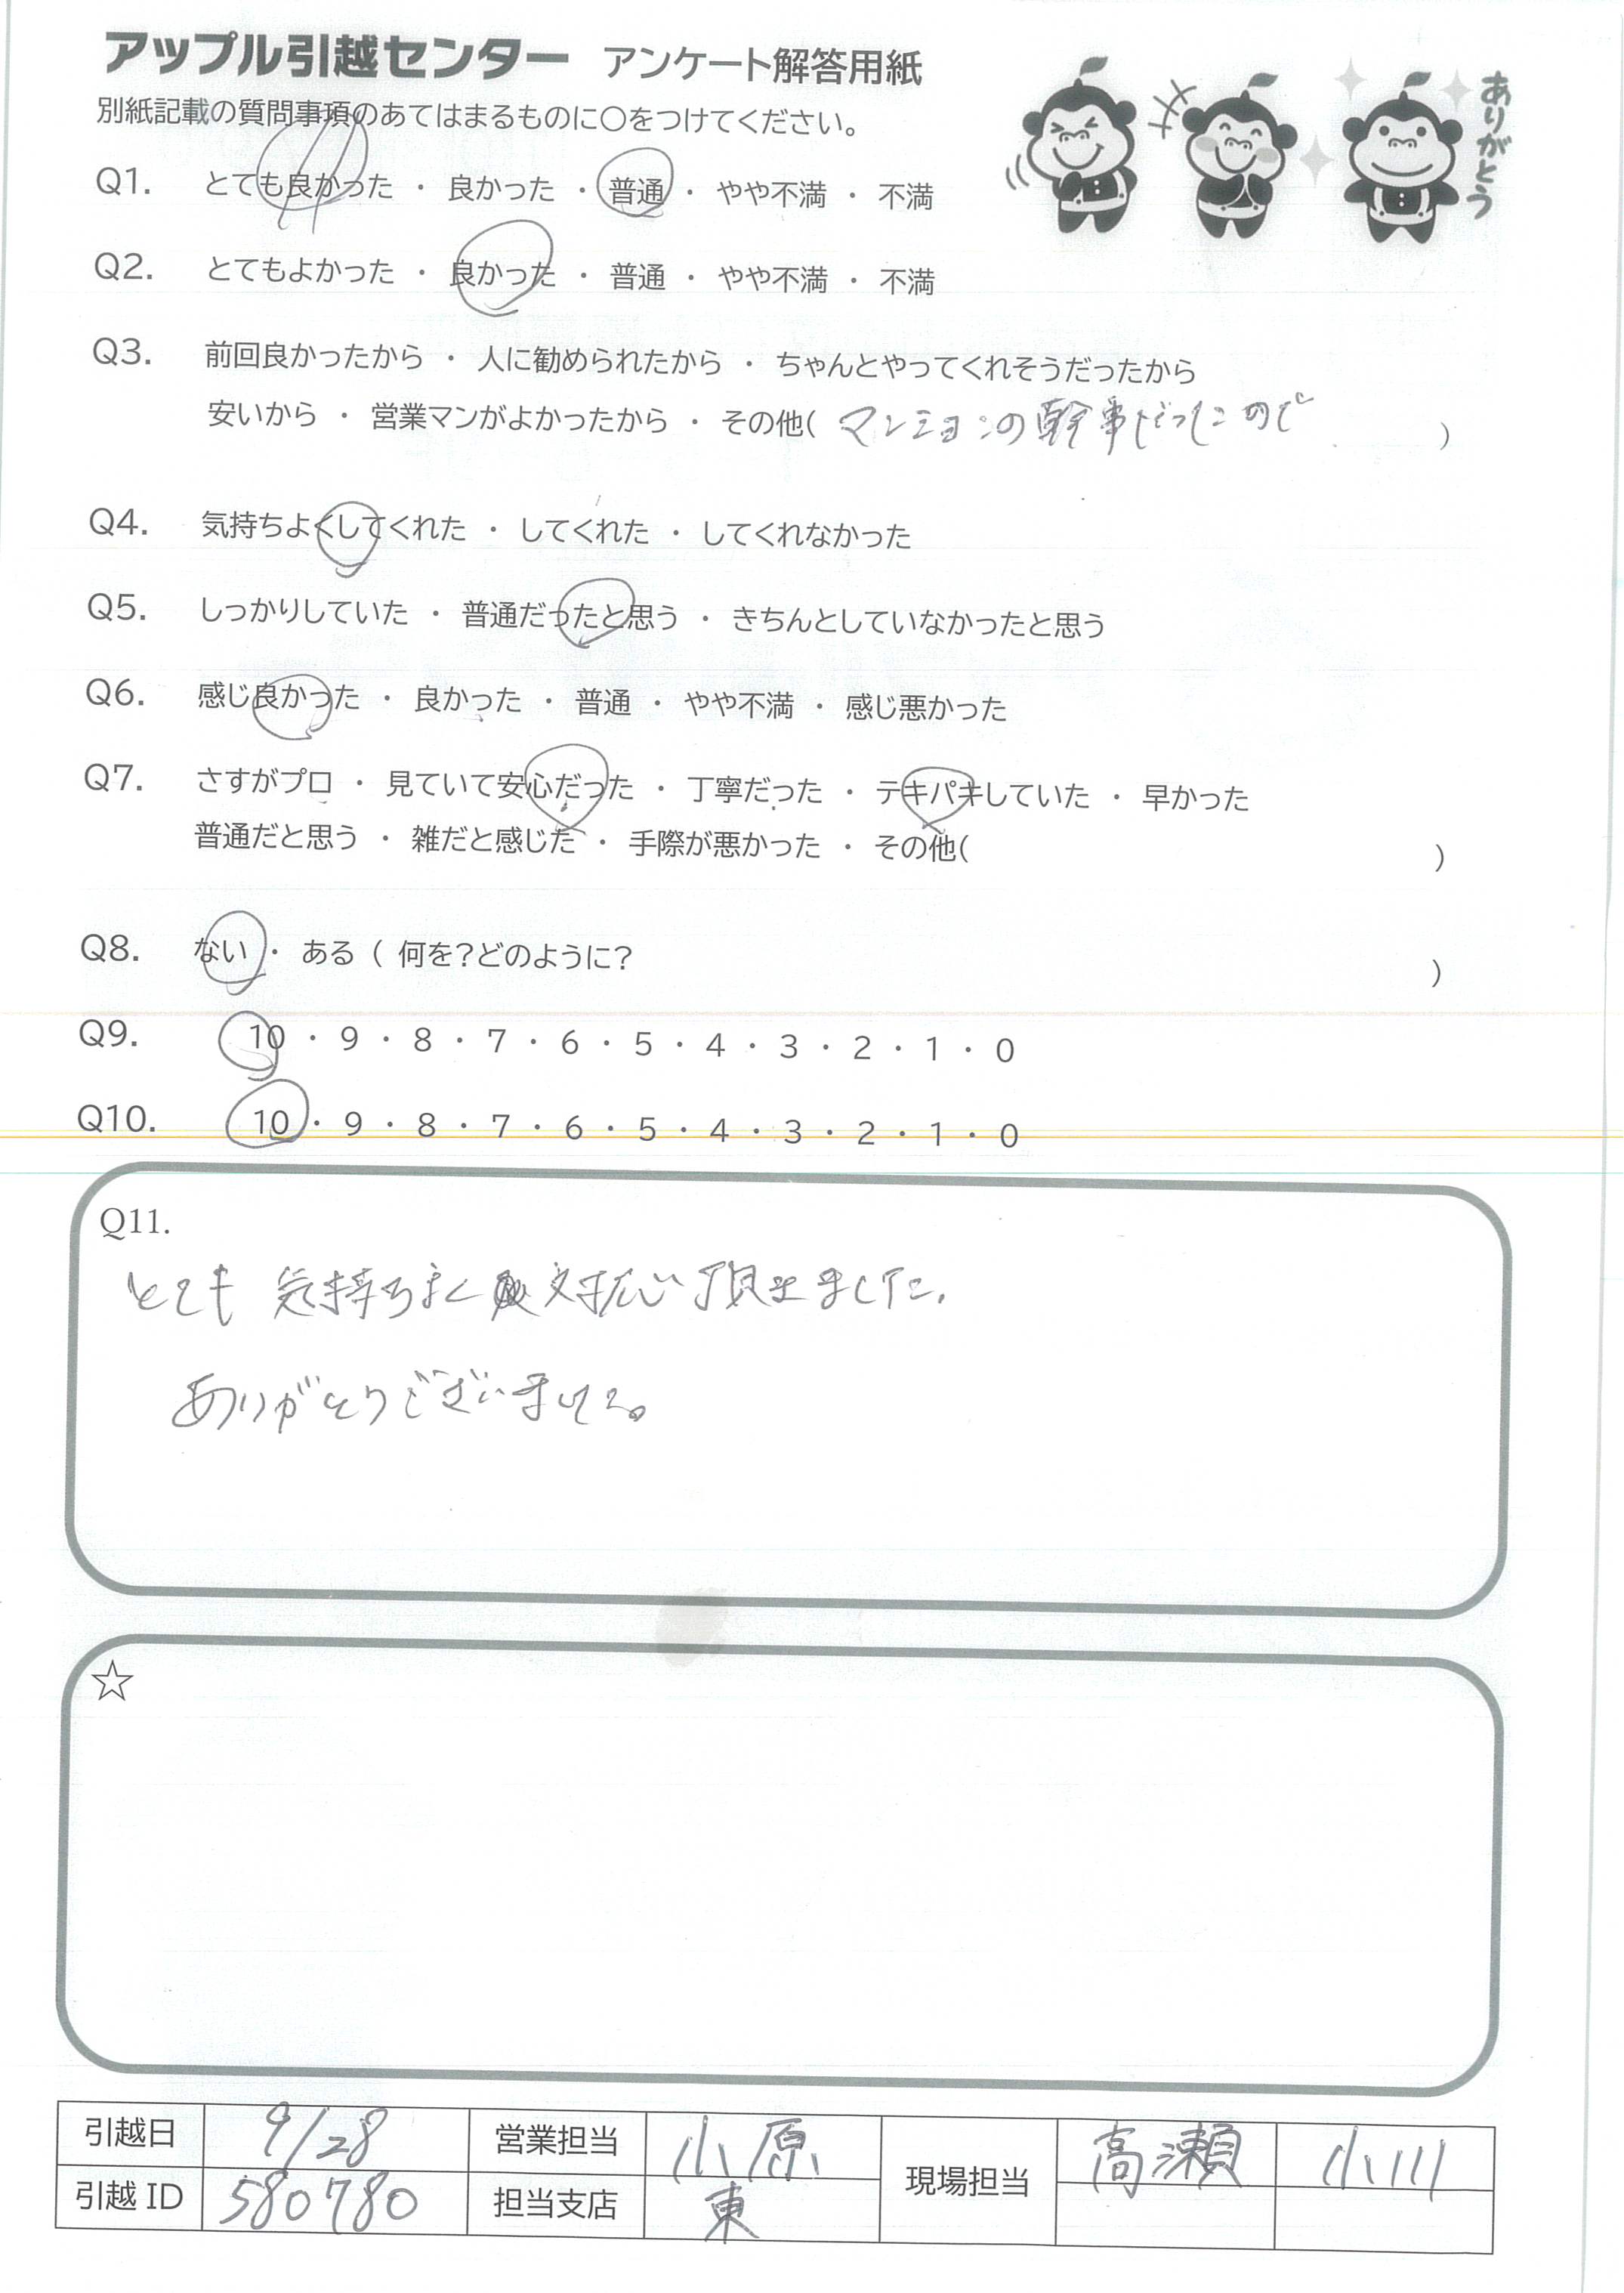 アップル引越センター アンケート解答用紙
別紙記載の質問事項のあてはまるものに〇をつけてください。
ありがとう
Q1. とても良かった ・ 良かった ・ 普通 ・ やや不満 ・ 不満
Q2. とてもよかった ・ 良かった ・ 普通 ・ やや不満 ・ 不満
Q3. 前回良かったから ・ 人に勧められたから ・ ちゃんとやってくれそうだったから
安いから ・ 営業マンがよかったから ・ その他( マンションの幹事だったので )
Q4. 気持ちよくしてくれた ・ してくれた ・ してくれなかった
Q5. しっかりしていた ・ 普通だったと思う ・ きちんとしていなかったと思う
Q6. 感じ良かった ・ 良かった ・ 普通 ・ やや不満 ・ 感じ悪かった
Q7. さすがプロ ・ 見ていて安心だった ・ 丁寧だった ・ テキパキしていた ・ 早かった
普通だと思う ・ 雑だと感じた ・ 手際が悪かった ・ その他( )
Q8. ない ・ ある ( 何を?どのように? )
Q9. 10 ・ 9 ・ 8 ・ 7 ・ 6 ・ 5 ・ 4 ・ 3 ・ 2 ・ 1 ・ 0
Q10. 10 ・ 9 ・ 8 ・ 7 ・ 6 ・ 5 ・ 4 ・ 3 ・ 2 ・ 1 ・ 0
Q11.
とても 気持ちよく 対応 頂きました.
ありがとうございました。
☆
引越日 9/28 営業担当 小原 現場担当 高瀬 小川
引越 ID 580780 担当支店 東